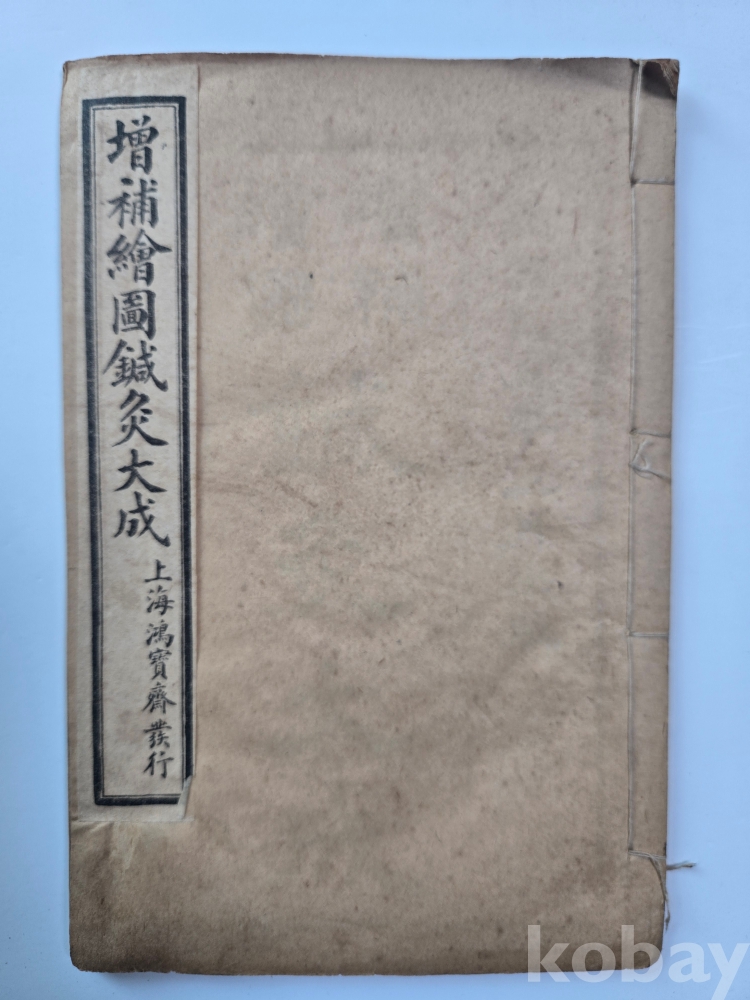 增補繪圖鍼灸大成
上海鴻寶齋發行
kobay